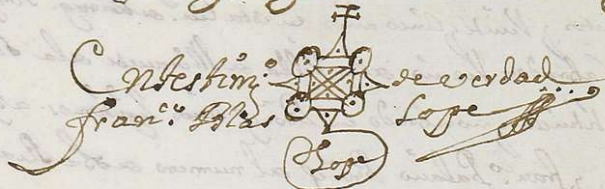 En testim.º de verdad
fran.co Blas Lope
Lope